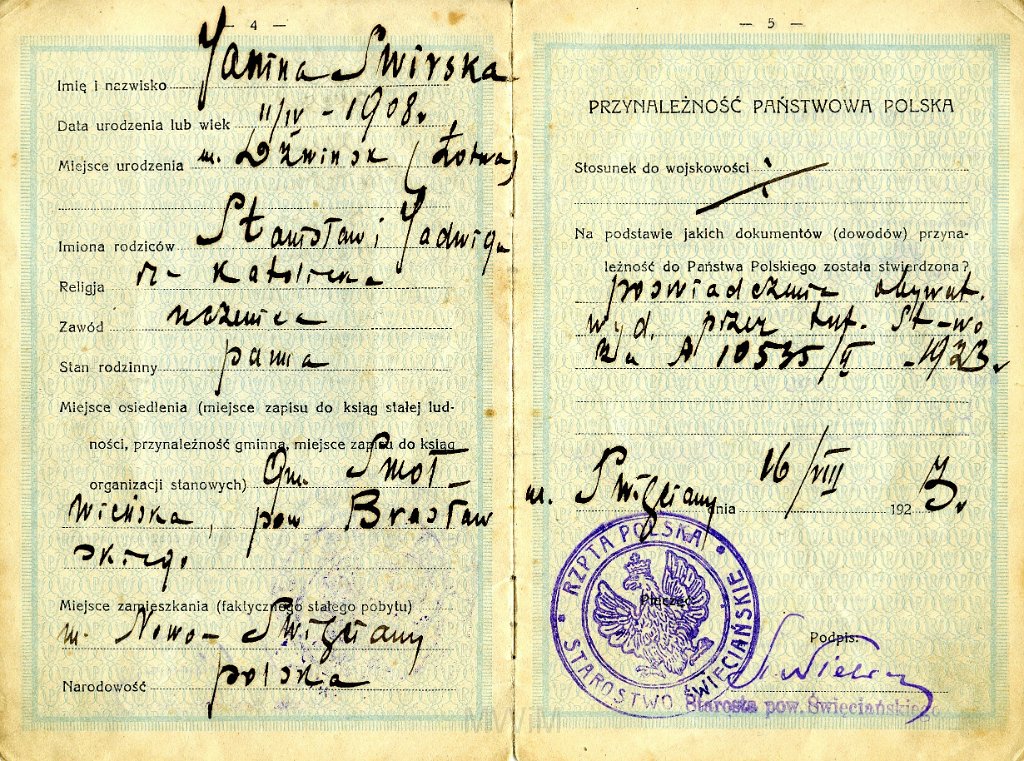 — 4 —
Imię i nazwisko Janina Swirska
Data urodzenia lub wiek 11/IV - 1908 r.
Miejsce urodzenia m. Dźwińsk (Łotwa)
Imiona rodziców Stanisław i Jadwiga
Religja rz-katolicka
Zawód uczenica
Stan rodzinny panna
Miejsce osiedlenia (miejsce zapisu do ksiąg stałej lud-
ności, przynależność gminna, miejsce zapisu do ksiąg
organizacji stanowych) Gm. Smoł-
wieńska, pow Brasław
skiego
Miejsce zamieszkania (faktycznego stałego pobytu)
m. Nowo-Święciany
Narodowość polska
— 5 —
PRZYNALEŻNOŚĆ PAŃSTWOWA POLSKA
Stosunek do wojskowości
Na podstawie jakich dokumentów (dowodów) przyna-
leżność do Państwa Polskiego została stwierdzona?
poświadczenie obywat.
wyd. przez tut. St-wo
za № 10535/II - 1923 r
m. Święciany dnia 16/VIII 1923 r
RZPTA POLSKA
STAROSTWO ŚWIĘCIAŃSKIE
Pieczęć
Podpis:
Starosta pow. Święciańskiego
MWIM